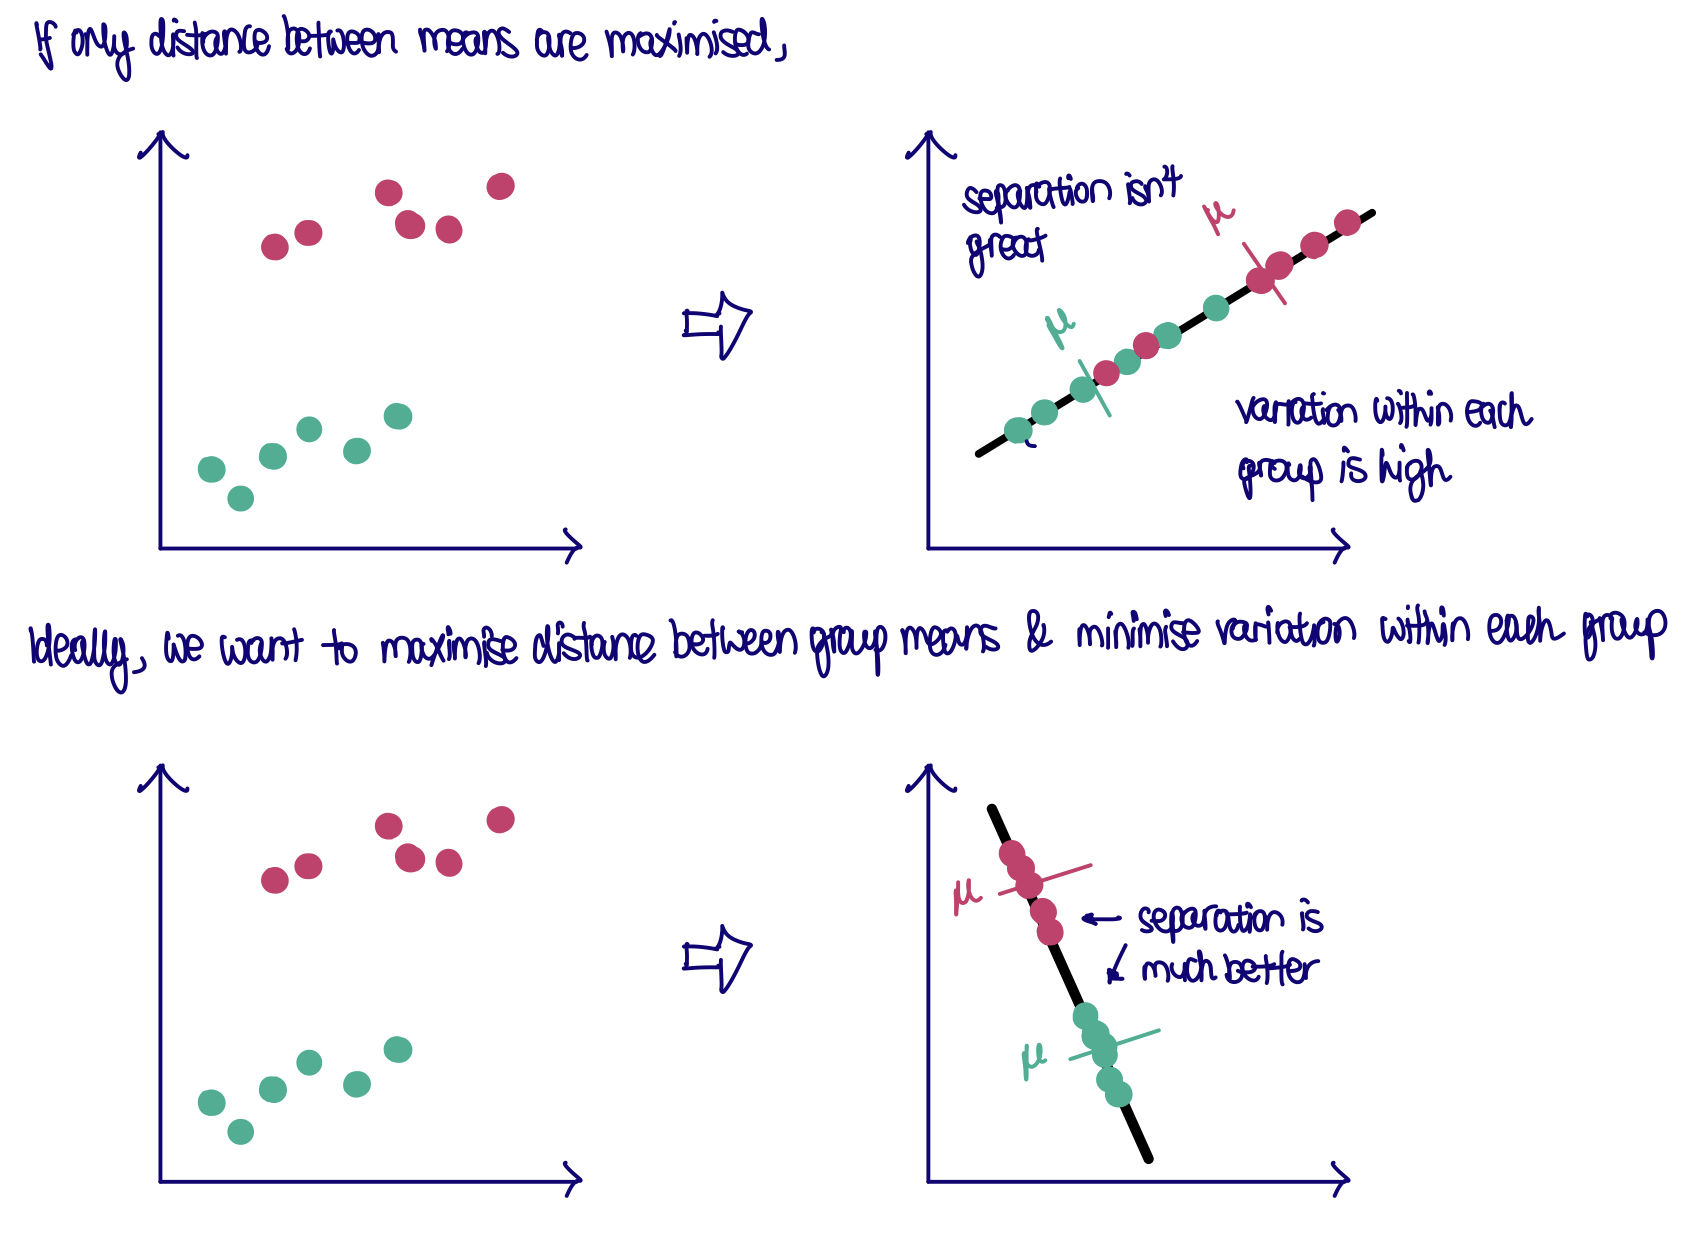 If only distance between means are maximised,
separation isn't
great
μ
μ
variation within each
group is high
Ideally, we want to maximise distance between group means & minimise variation within each group
μ
separation is
much better
μ